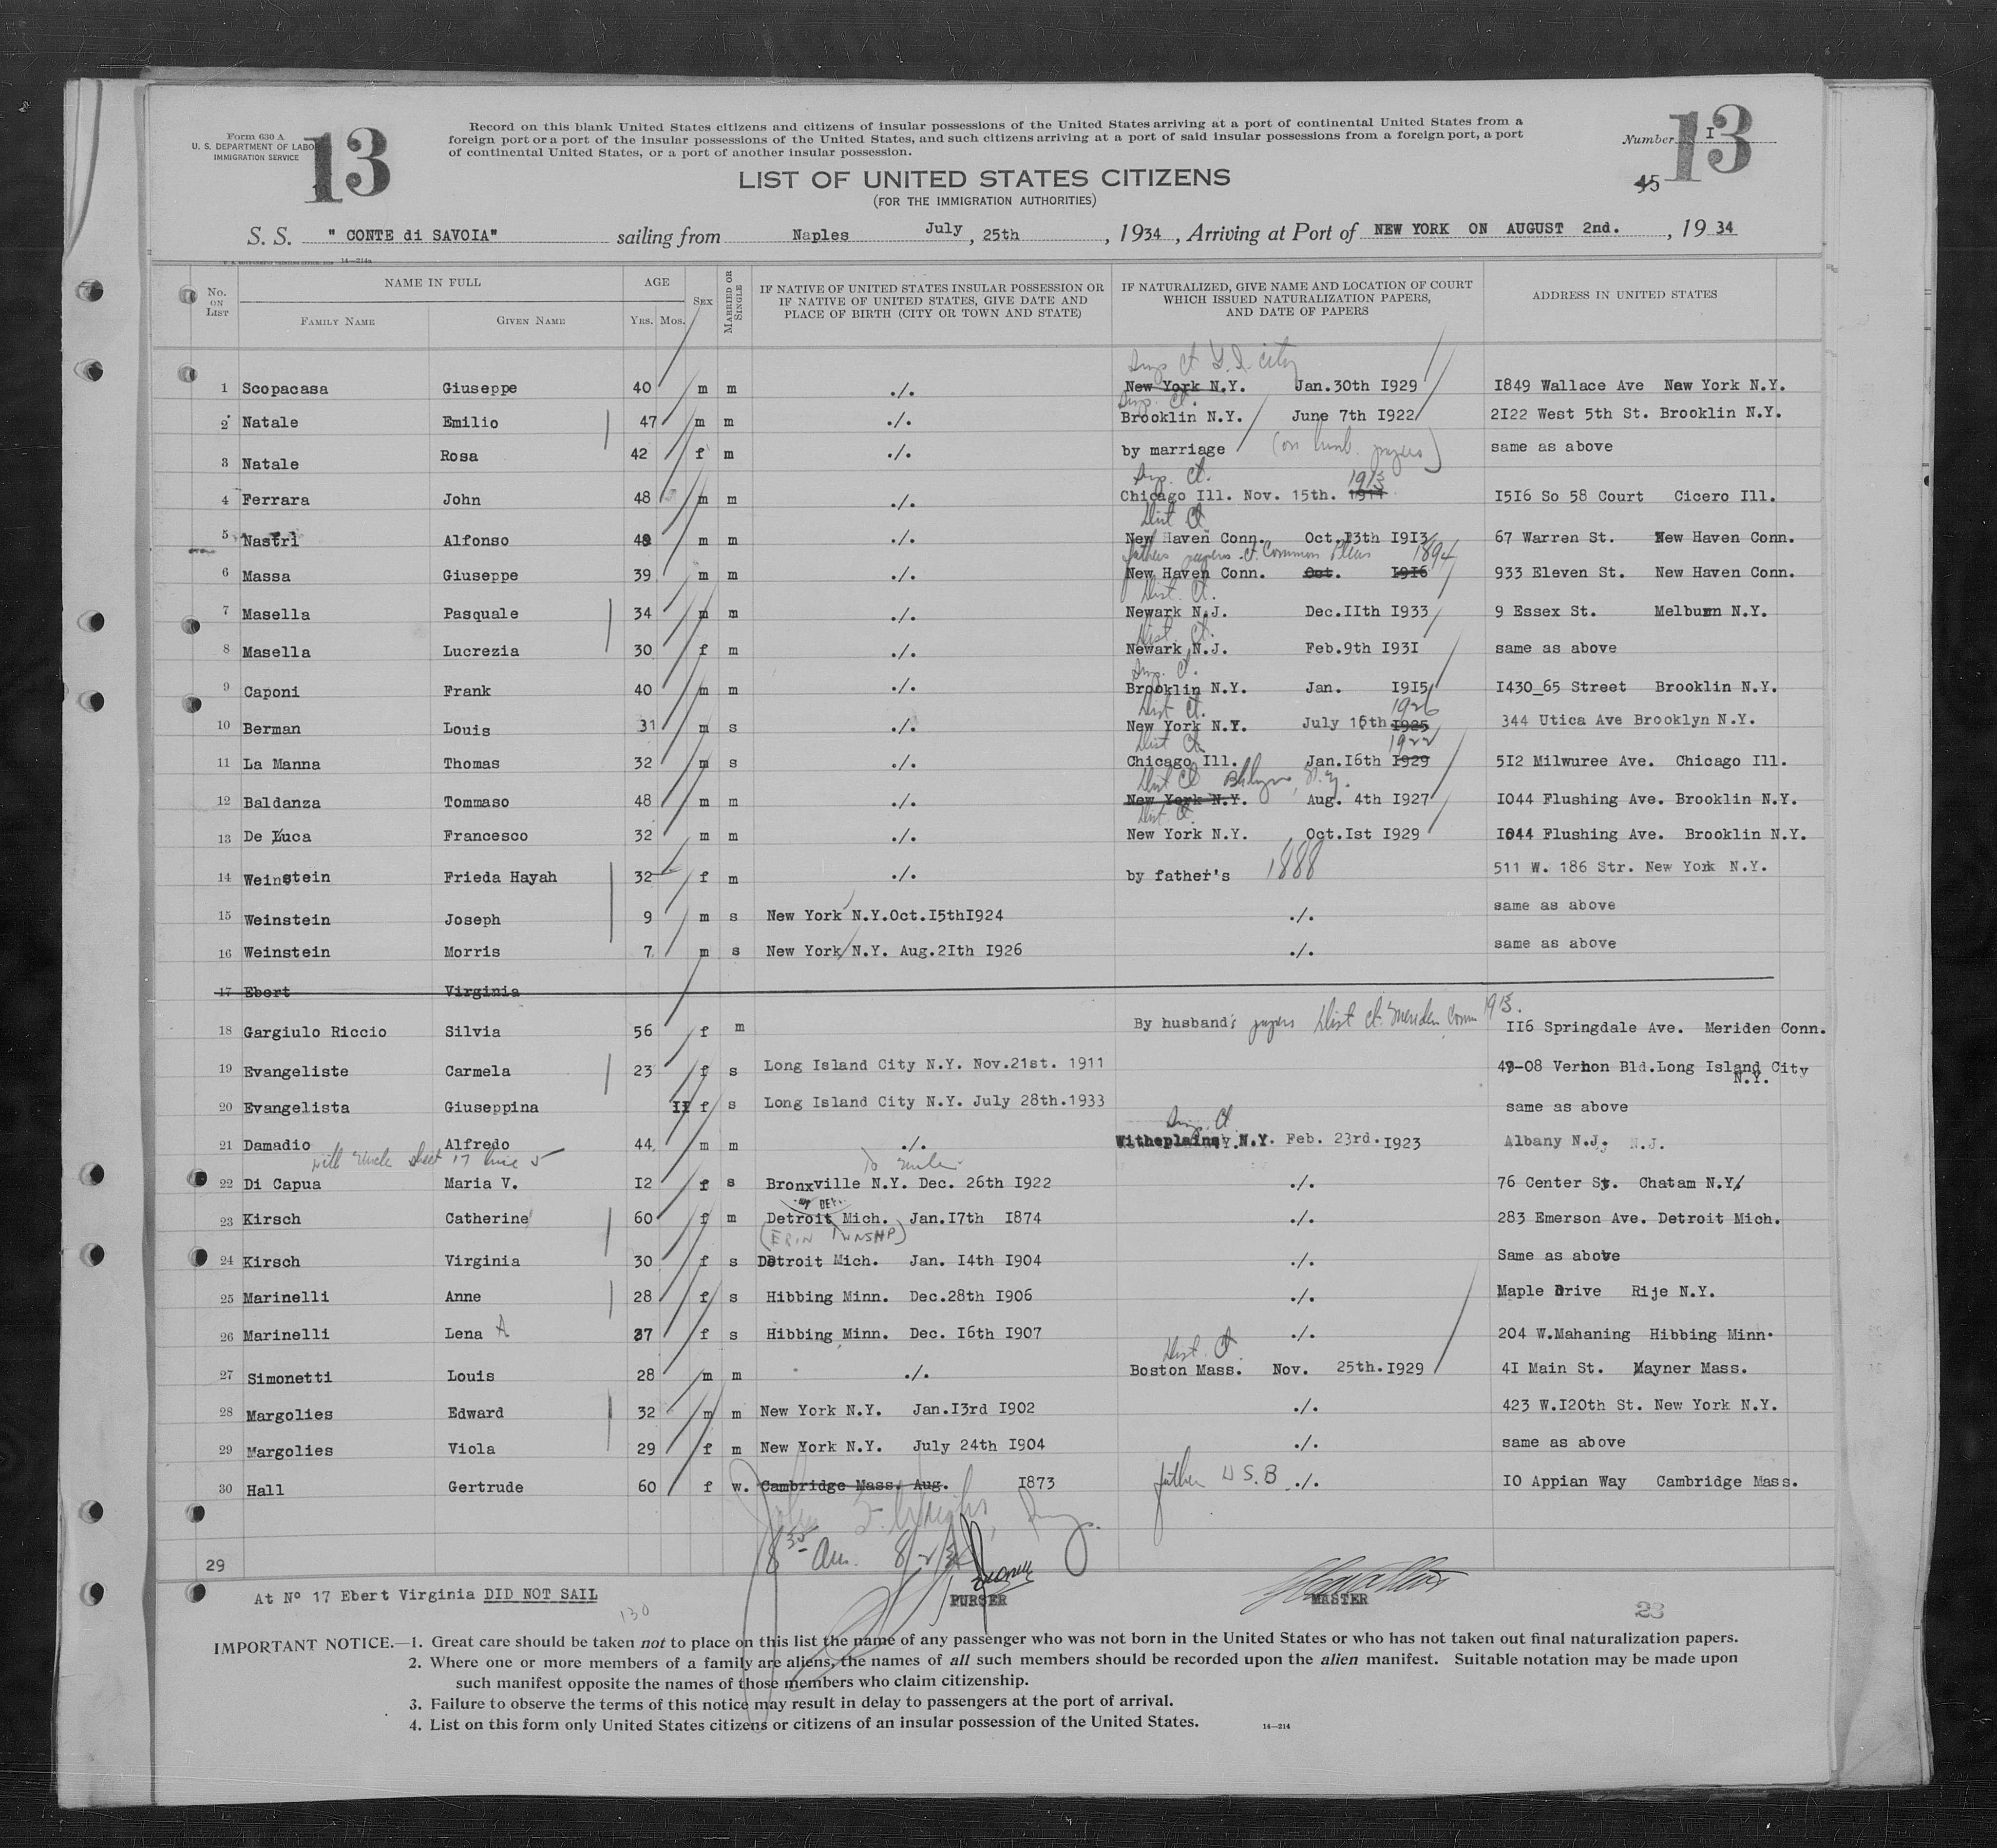 Form 630 A
U. S. DEPARTMENT OF LABOR
IMMIGRATION SERVICE
13
Record on this blank United States citizens and citizens of insular possessions of the United States arriving at a port of continental United States from a
foreign port or a port of the insular possessions of the United States, and such citizens arriving at a port of said insular possessions from a foreign port, a port
of continental United States, or a port of another insular possession.
Number I
13
45
LIST OF UNITED STATES CITIZENS
(FOR THE IMMIGRATION AUTHORITIES)
S. S. " CONTE di SAVOIA" sailing from Naples July, 25th, 1934, Arriving at Port of NEW YORK ON AUGUST 2nd., 1934
14—214a
No. ON LIST
NAME IN FULL
FAMILY NAME GIVEN NAME
AGE
YRS. MOS.
SEX
MARRIED OR SINGLE
IF NATIVE OF UNITED STATES INSULAR POSSESSION OR
IF NATIVE OF UNITED STATES, GIVE DATE AND
PLACE OF BIRTH (CITY OR TOWN AND STATE)
IF NATURALIZED, GIVE NAME AND LOCATION OF COURT
WHICH ISSUED NATURALIZATION PAPERS,
AND DATE OF PAPERS
ADDRESS IN UNITED STATES
Sup Ct L.I. City
1 Scopacasa Giuseppe 40 m m ./. New York N.Y. Jan.30th I929 I849 Wallace Ave New York N.Y.
Sup. Ct.
2 Natale Emilio 47 m m ./. Brooklin N.Y. June 7th I922 2I22 West 5th St. Brooklin N.Y.
3 Natale Rosa 42 f m ./. by marriage (on husb. papers) same as above
Sup. Ct. 1913
4 Ferrara John 48 m m ./. Chicago Ill. Nov. 15th. 1914 I5I6 So 58 Court Cicero Ill.
Dist Ct
5 Nastri Alfonso 48 m m ./. New Haven Conn. Oct.I3th I9I3 67 Warren St. New Haven Conn.
fathers papers Ct. Common Pleas 1894
6 Massa Giuseppe 39 m m ./. New Haven Conn. Oct. I9I6 933 Eleven St. New Haven Conn.
Dist. Ct.
7 Masella Pasquale 34 m m ./. Newark N.J. Dec.IIth I933 9 Essex St. Melburn N.Y.
Dist. Ct.
8 Masella Lucrezia 30 f m ./. Newark N.J. Feb.9th I93I same as above
Sup. Ct.
9 Caponi Frank 40 m m ./. Brooklin N.Y. Jan. I9I5 I430_65 Street Brooklin N.Y.
Dist Ct. 1926
10 Berman Louis 31 m s ./. New York N.Y. July 16th I925 344 Utica Ave Brooklyn N.Y.
Dist Ct. 1922
11 La Manna Thomas 32 m s ./. Chicago Ill. Jan.I6th I929 5I2 Milwuree Ave. Chicago Ill.
Dist Ct Bklyn, N.Y.
12 Baldanza Tommaso 48 m m ./. New York N.Y. Aug. 4th I927 I044 Flushing Ave. Brooklin N.Y.
Dist. Ct.
13 De Luca Francesco 32 m m ./. New York N.Y. Oct.Ist I929 I044 Flushing Ave. Brooklin N.Y.
14 Weinstein Frieda Hayah 32 f m ./. by father's 1888 511 W. 186 Str. New York N.Y.
15 Weinstein Joseph 9 m s New York N.Y.Oct.I5thI924 ./. same as above
16 Weinstein Morris 7 m s New York N.Y. Aug.2Ith I926 ./. same as above
17 Ebert Virginia
18 Gargiulo Riccio Silvia 56 f m By husband's papers Dist Ct. Meriden Conn 1913. II6 Springdale Ave. Meriden Conn.
19 Evangeliste Carmela 23 f s Long Island City N.Y. Nov.21st. 1911 49-08 Vernon Bld.Long Island City
N.Y.
20 Evangelista Giuseppina II f s Long Island City N.Y. July 28th.1933 same as above
Sup. Ct
21 Damadio Alfredo 44 m m ./. Witheplainsy N.Y. Feb. 23rd.I923 Albany N.J. N.J.
with Uncle sheet 17 line 5
22 Di Capua Maria V. I2 f s Bronxville N.Y. Dec. 26th I922 ./. 76 Center St. Chatam N.Y.
23 Kirsch Catherine 60 f m Detroit Mich. Jan.I7th I874 ./. 283 Emerson Ave. Detroit Mich.
(ERIN TWNSHP)
24 Kirsch Virginia 30 f s Detroit Mich. Jan. I4th I904 ./. Same as above
25 Marinelli Anne 28 f s Hibbing Minn. Dec.28th I906 ./. Maple Drive Rije N.Y.
26 Marinelli Lena A 27 f s Hibbing Minn. Dec. I6th I907 ./. 204 W.Mahaning Hibbing Minn.
Dist. Ct
27 Simonetti Louis 28 m m ./. Boston Mass. Nov. 25th.I929 4I Main St. Mayner Mass.
28 Margolies Edward 32 m m New York N.Y. Jan.I3rd I902 ./. 423 W.I20th St. New York N.Y.
29 Margolies Viola 29 f m New York N.Y. July 24th I904 ./. same as above
30 Hall Gertrude 60 f w. Cambridge Mass. Aug. I873 father U.S.B ./. IO Appian Way Cambridge Mass.
8 35 Am. 8/2/34
29
At Nº 17 Ebert Virginia DID NOT SAIL
130
PURSER
MASTER
23
IMPORTANT NOTICE.—1. Great care should be taken not to place on this list the name of any passenger who was not born in the United States or who has not taken out final naturalization papers.
2. Where one or more members of a family are aliens, the names of all such members should be recorded upon the alien manifest. Suitable notation may be made upon
such manifest opposite the names of those members who claim citizenship.
3. Failure to observe the terms of this notice may result in delay to passengers at the port of arrival.
4. List on this form only United States citizens or citizens of an insular possession of the United States.
14—214